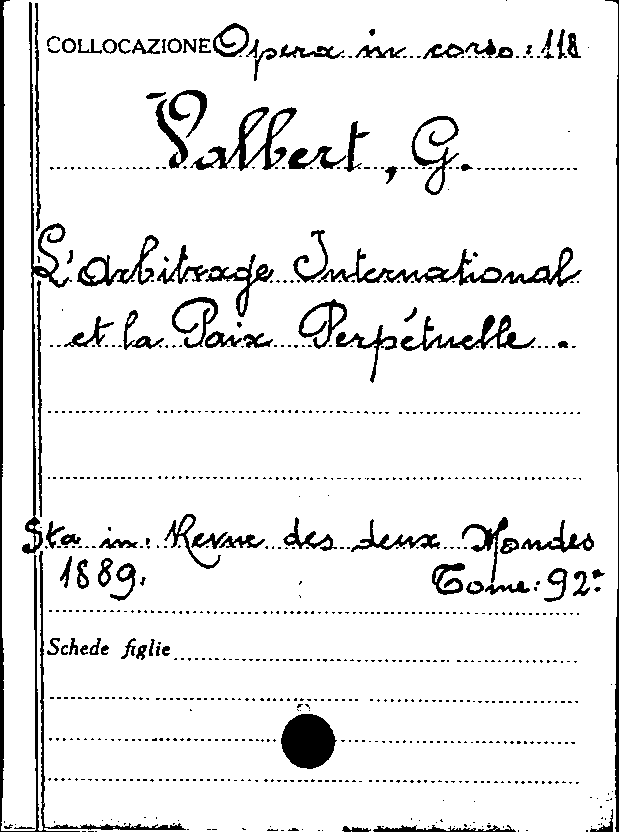 COLLOCAZIONE Opera in corso: 118
Valbert, G.
L'Arbitrage International
et la Paix Perpétuelle.
Sta in. Revue des deux Mondes
1889. Tome: 92°
Schede figlie